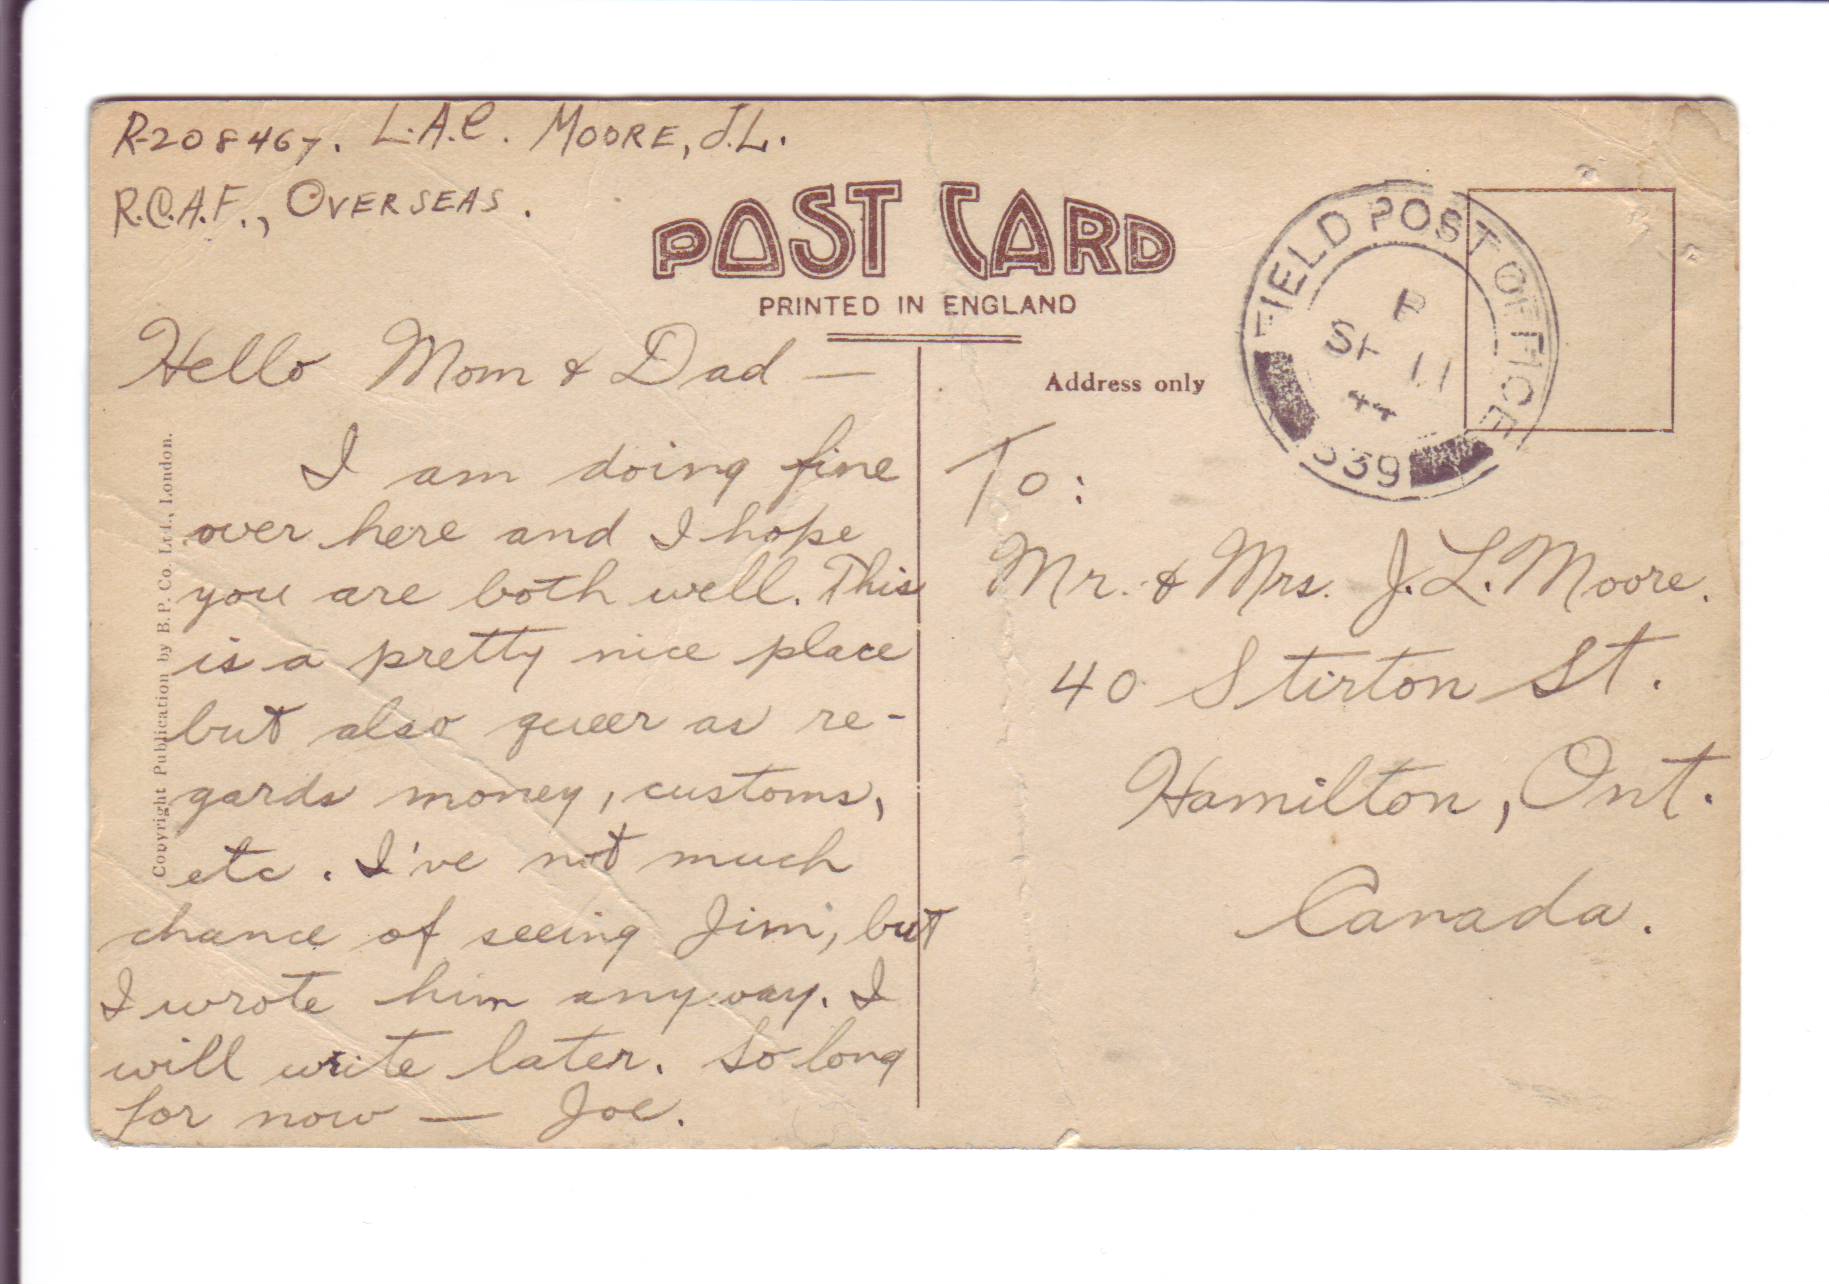 R-208467. L.A.C. MOORE, J.L.
R.C.A.F., OVERSEAS.
POST CARD
PRINTED IN ENGLAND
FIELD POST OFFICE
11
44
Address only
Hello Mom & Dad —
I am doing fine
over here and I hope
you are both well. This
is a pretty nice place
but also queer as re-
gards money, customs,
etc. I've not much
chance of seeing Jim, but
I wrote him anyway. I
will write later. So long
for now — Joe.
To:
Mr. & Mrs. J. L. Moore.
40 Stirton St.
Hamilton, Ont.
Canada.
Copyright Publication by B.P. Co. Ltd., London.